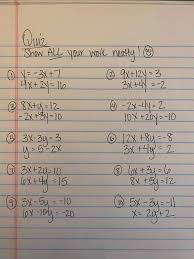 Quiz
Show ALL your work neatly!
① y = -3x + 7
4x + 2y = 16
② 9x + 12y = 3
3x + 4y = -2
③ 8x + y = 12
-2x + 3y = 10
④ -2x - 4y = 2
10x + 20y = -10
⑤ 3x - 3y = 3
y = 5 - 2x
⑥ 12x + 8y = -8
3x + 4y = 2
⑦ 3x + 2y = 10
6x + 4y = 15
⑧ 6x + 3y = 6
8x + 5y = 12
⑨ 3x - 5y = -10
6x - 10y = -20
⑩ 3x - 5y = -11
x = 2y + 2